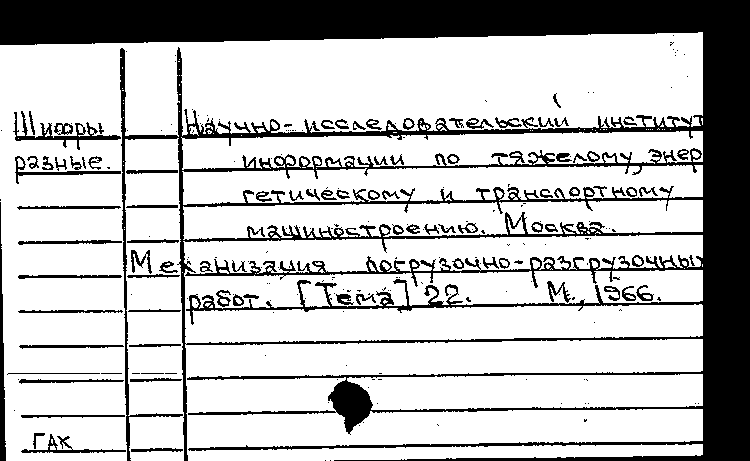 Шифры Научно-исследовательский институт
разные. информации по тяжелому, энер
гетическому и транспортному
машиностроению. Москва.
Механизация погрузочно-разгрузочных
работ. [Тема] 22. М., 1966.
ГАК